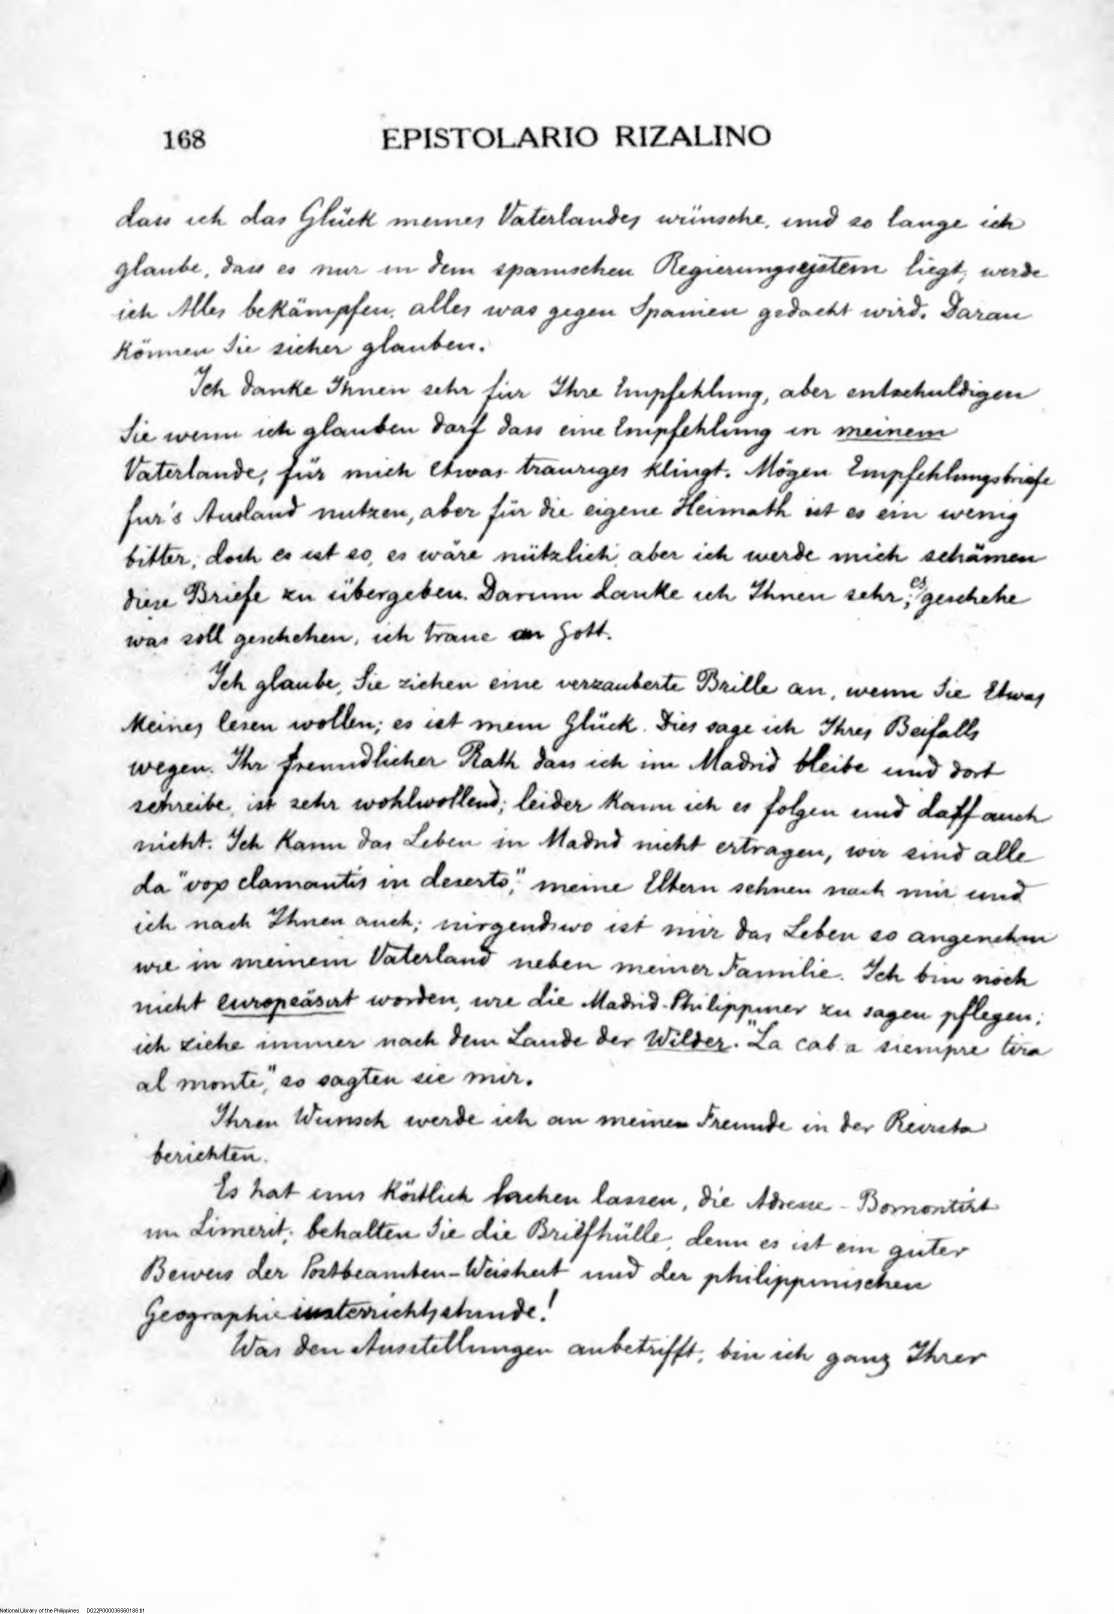 168 EPISTOLARIO RIZALINO
dass ich das Glück meines Vaterlandes wünsche, und so lange ich
glaube, dass es nur in dem spanischen Regierungssystem liegt, werde
ich Alles bekämpfen, alles was gegen Spanien gedacht wird. Daran
können Sie sicher glauben.
Ich danke Ihnen sehr für Ihre Empfehlung, aber entschuldigen
Sie wenn ich glauben darf dass eine Empfehlung in meinem
Vaterlande, für mich etwas trauriges klingt. Mögen Empfehlungsbriefe
fur's Ausland nutzen, aber für die eigene Heimath ist es ein wenig
bitter; doch es ist so, es wäre nützlich, aber ich werde mich schämen
diese Briefe zu übergeben. Darum danke ich Ihnen sehr; es geschehe
was soll geschehen, ich traue an Gott.
Ich glaube, Sie ziehen eine verzauberte Brille an, wenn Sie Etwas
Meines lesen wollen; es ist mein Glück. Dies sage ich Ihres Beifalls
wegen. Ihr freundlicher Rath dass ich im Madrid bleibe und dort
schreibe, ist sehr wohlwollend; leider kann ich es folgen und daff auch
nicht. Ich kann das Leben in Madrid nicht ertragen, wir sind alle
da "vox clamantis in deserto," meine Eltern sehnen nach mir und
ich nach Ihnen auch; nirgendswo ist mir das Leben so angenehm
wie in meinem Vaterland neben meiner Familie. Ich bin noch
nicht europeäsirt worden, wie die Madrid-Philippiner zu sagen pflegen;
ich ziehe immer nach dem Lande der Wilder. "La cab a siempre tira
al monte," so sagten sie mir.
Ihren Wunsch werde ich an meinen Freunde in der Revista
berichten.
Es hat uns köstlich lachen lassen, die Adresse - Bomontirt
im Limerit; behalten Sie die Briefhülle, denn es ist ein guter
Beweis der Postbeamten-Weisheit und der philippinischen
Geographie unterrichtsstunde!
Was den Ausstellungen anbetrifft, bin ich ganz Ihrer
National Library of the Philippines